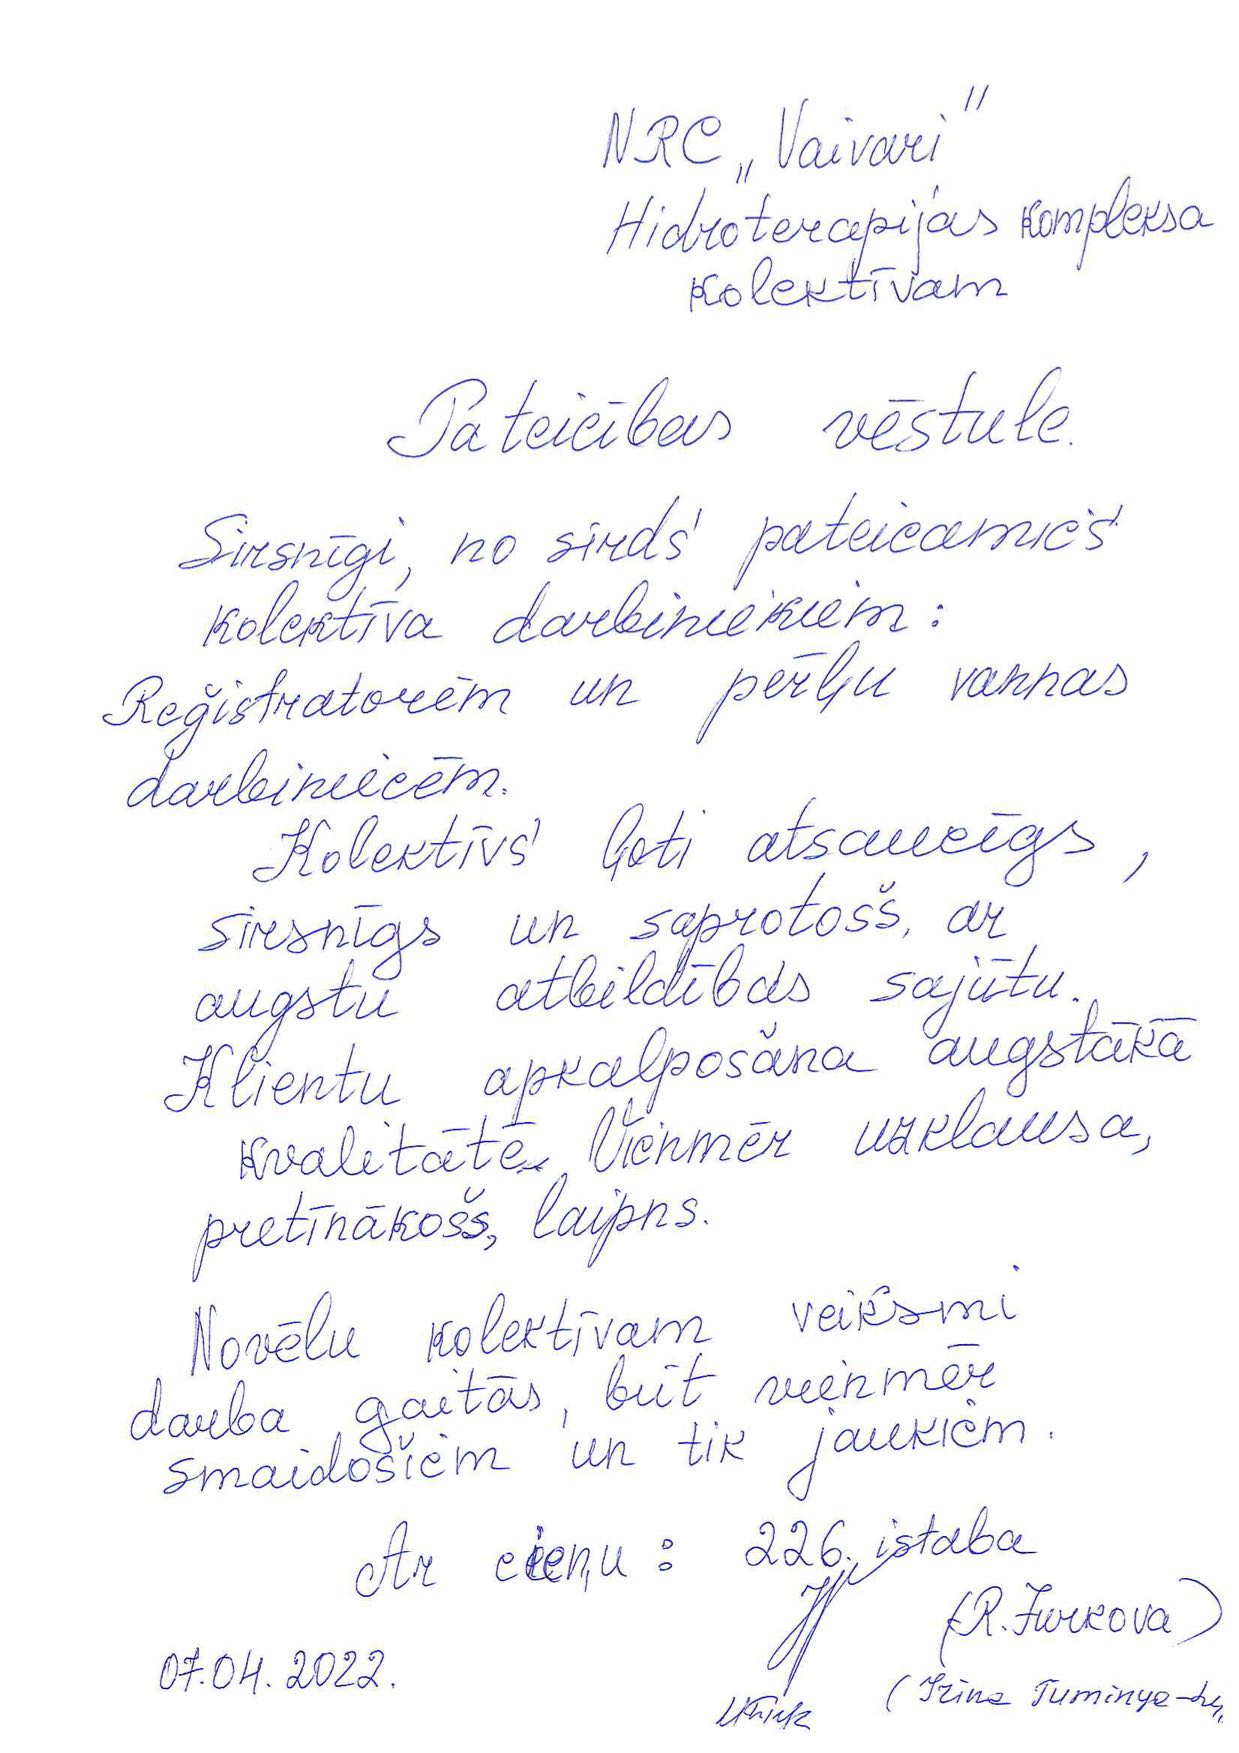 NRC „Vaivari"
Hidroterapijas kompleksa
kolektīvam
Pateicības vēstule.
Sirsnīgi, no sirds pateicamies
kolektīva darbiniekiem:
Reģistratorēm un pērļu vannas
darbiniecēm.
Kolektīvs ļoti atsaucīgs,
sirsnīgs un saprotošs, ar
augstu atbildības sajūtu.
Klientu apkalpošana augstākā
kvalitātē. Vienmēr uzklausa,
pretīnākošs, laipns.
Novēlu kolektīvam veiksmi
darba gaitās, būt vienmēr
smaidošiem un tik jaukiem.
Ar cieņu: 226. istaba
(R. Jurkova)
07.04.2022.
(Irina